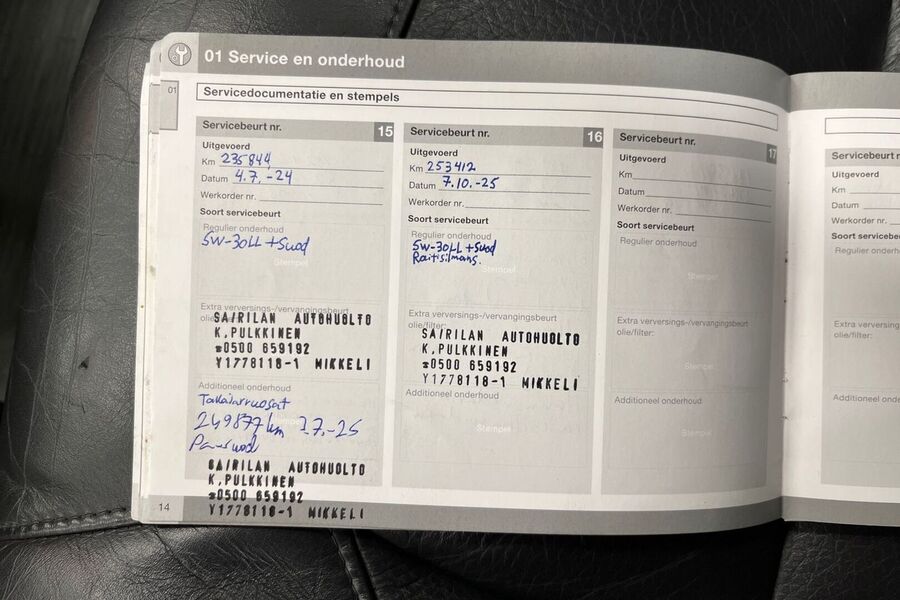 01 Service en onderhoud
01
Servicedocumentatie en stempels
Servicebeurt nr. 15
Uitgevoerd
Km 235844
Datum 4.7.-24
Werkorder nr.
Soort servicebeurt
Regulier onderhoud
5W-30LL + Suod
Stempel
Extra verversings-/vervangingsbeurt
olie
SAIRILAN AUTOHUOLTO
K.PULKKINEN
☎0500 659192
Y1778118-1 MIKKELI
Additioneel onderhoud
Takajarruosat
249877 km 7.-25
SAIRILAN AUTOHUOLTO
K.PULKKINEN
☎0500 659192
Y1778118-1 MIKKELI
14
Servicebeurt nr. 16
Uitgevoerd
Km 253412
Datum 7.10.-25
Werkorder nr.
Soort servicebeurt
Regulier onderhoud
5W-30LL + Suod
Raitisilmans.
Stempel
Extra verversings-/vervangingsbeurt
olie/filter:
SAIRILAN AUTOHUOLTO
K.PULKKINEN
☎0500 659192
Y1778118-1 MIKKELI
Additioneel onderhoud
Stempel
Servicebeurt nr. 17
Uitgevoerd
Km
Datum
Werkorder nr.
Soort servicebeurt
Regulier onderhoud
Stempel
Extra verversings-/vervangingsbeurt
olie/filter:
Stempel
Additioneel onderhoud
Stempel
Servicebeurt n
Uitgevoerd
Km
Datum
Werkorder nr.
Soort servicebe
Regulier onderh
Extra verversing
olie/filter:
Additioneel onde